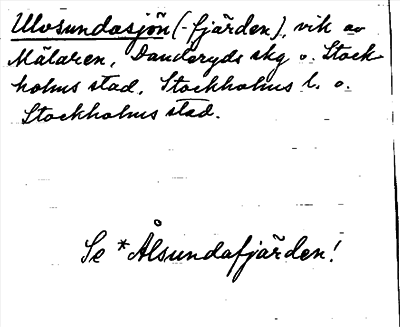 Ulvsundasjön (-fjärden), vik av
Mälaren, Danderyds skg o. Stock-
holms stad, Stockholms l. o.
Stockholms stad.
Se *Ålsundafjärden!